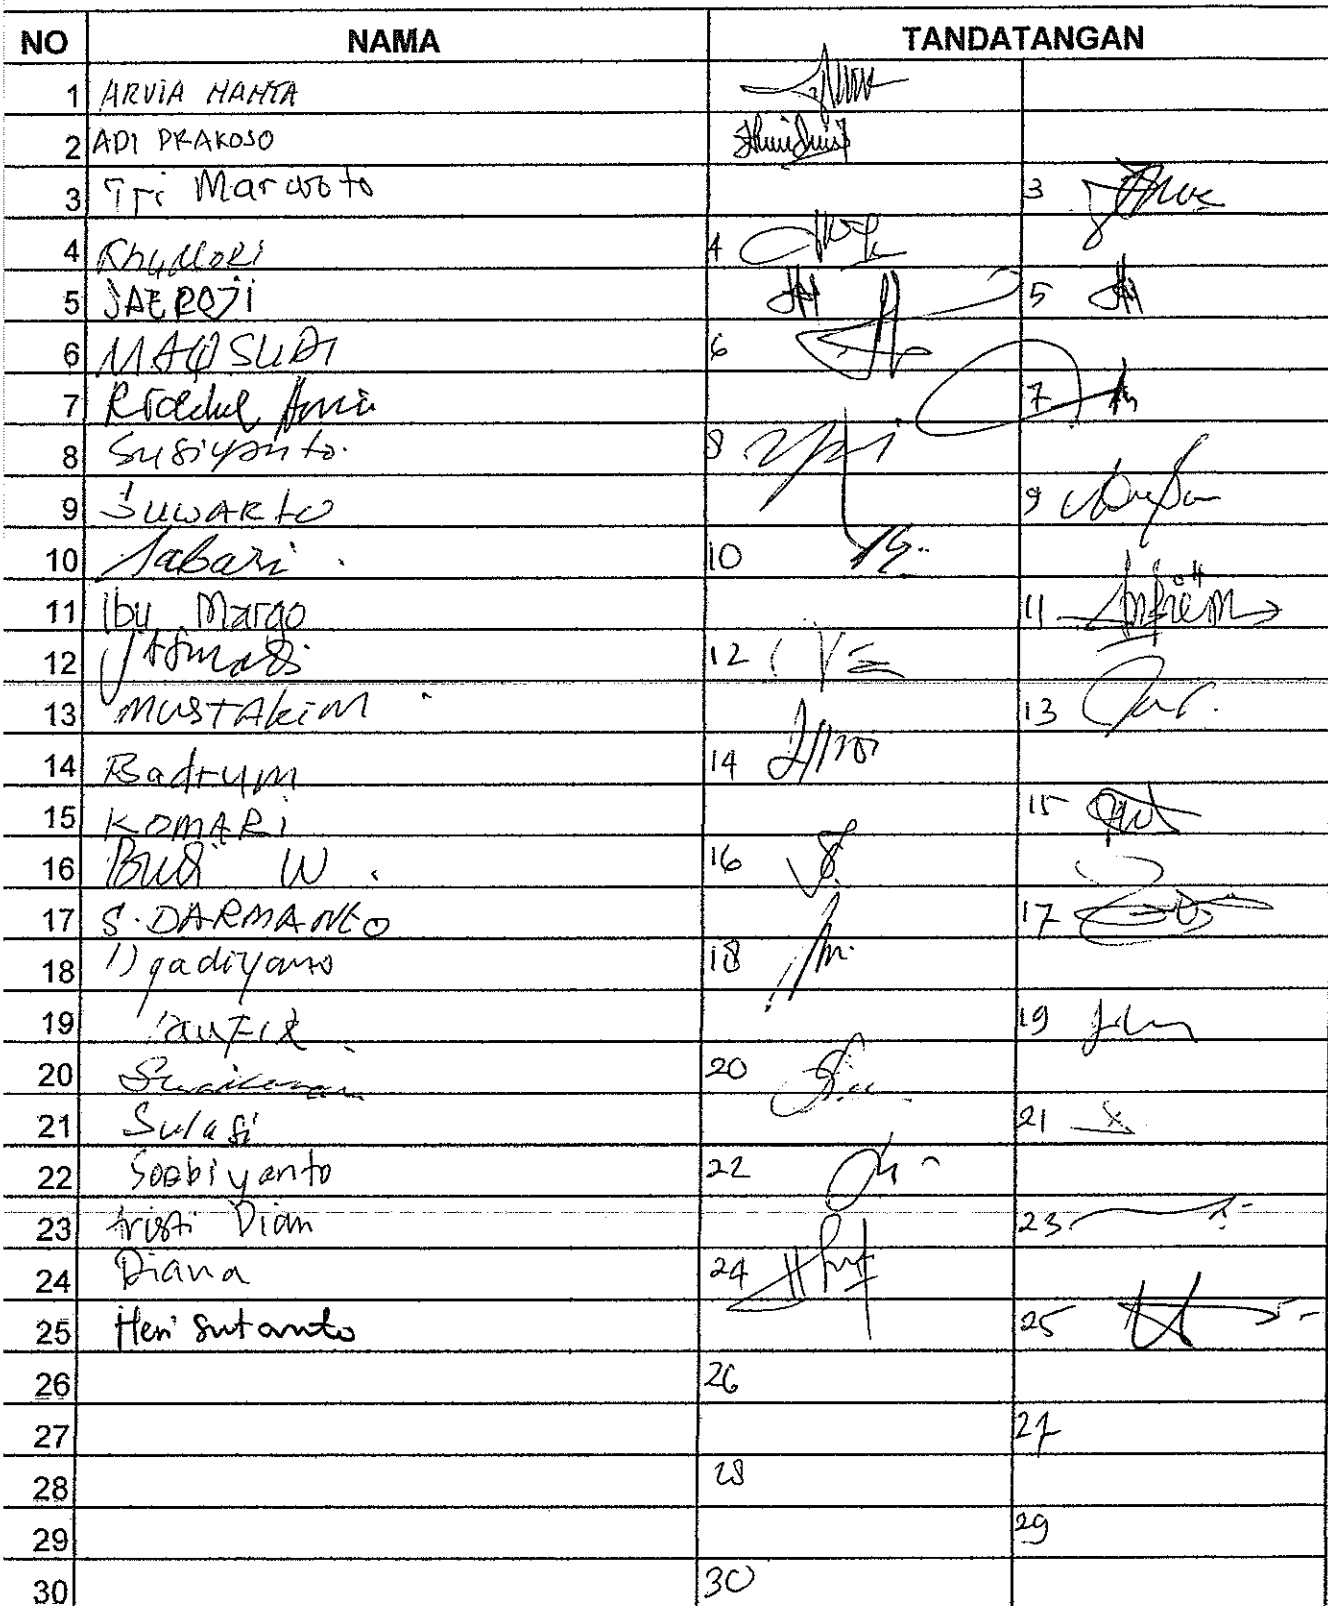 NO NAMA TANDATANGAN
1 ARVIA HANTA
2 ADI PRAKOSO
3 Tri Marwoto 3
4 4
5 JAEROJI 5
6 MAQSUDI 6
7 7
8 Susiyanto. 8
9 SUWARTO 9
10 Sabari . 10
11 Ibu Margo 11
12 12
13 MUSTAKIM 13
14 Badrum 14
15 KOMARI 15
16 Budi W . 16
17 S. DARMANTO 17
18 18
19 TAUFIK 19
20 20
21 Sulasi 21
22 Soebiyanto 22
23 Dian 23
24 Diana 24
25 Heri Sutanto 25
26 26
27 27
28 28
29 29
30 30